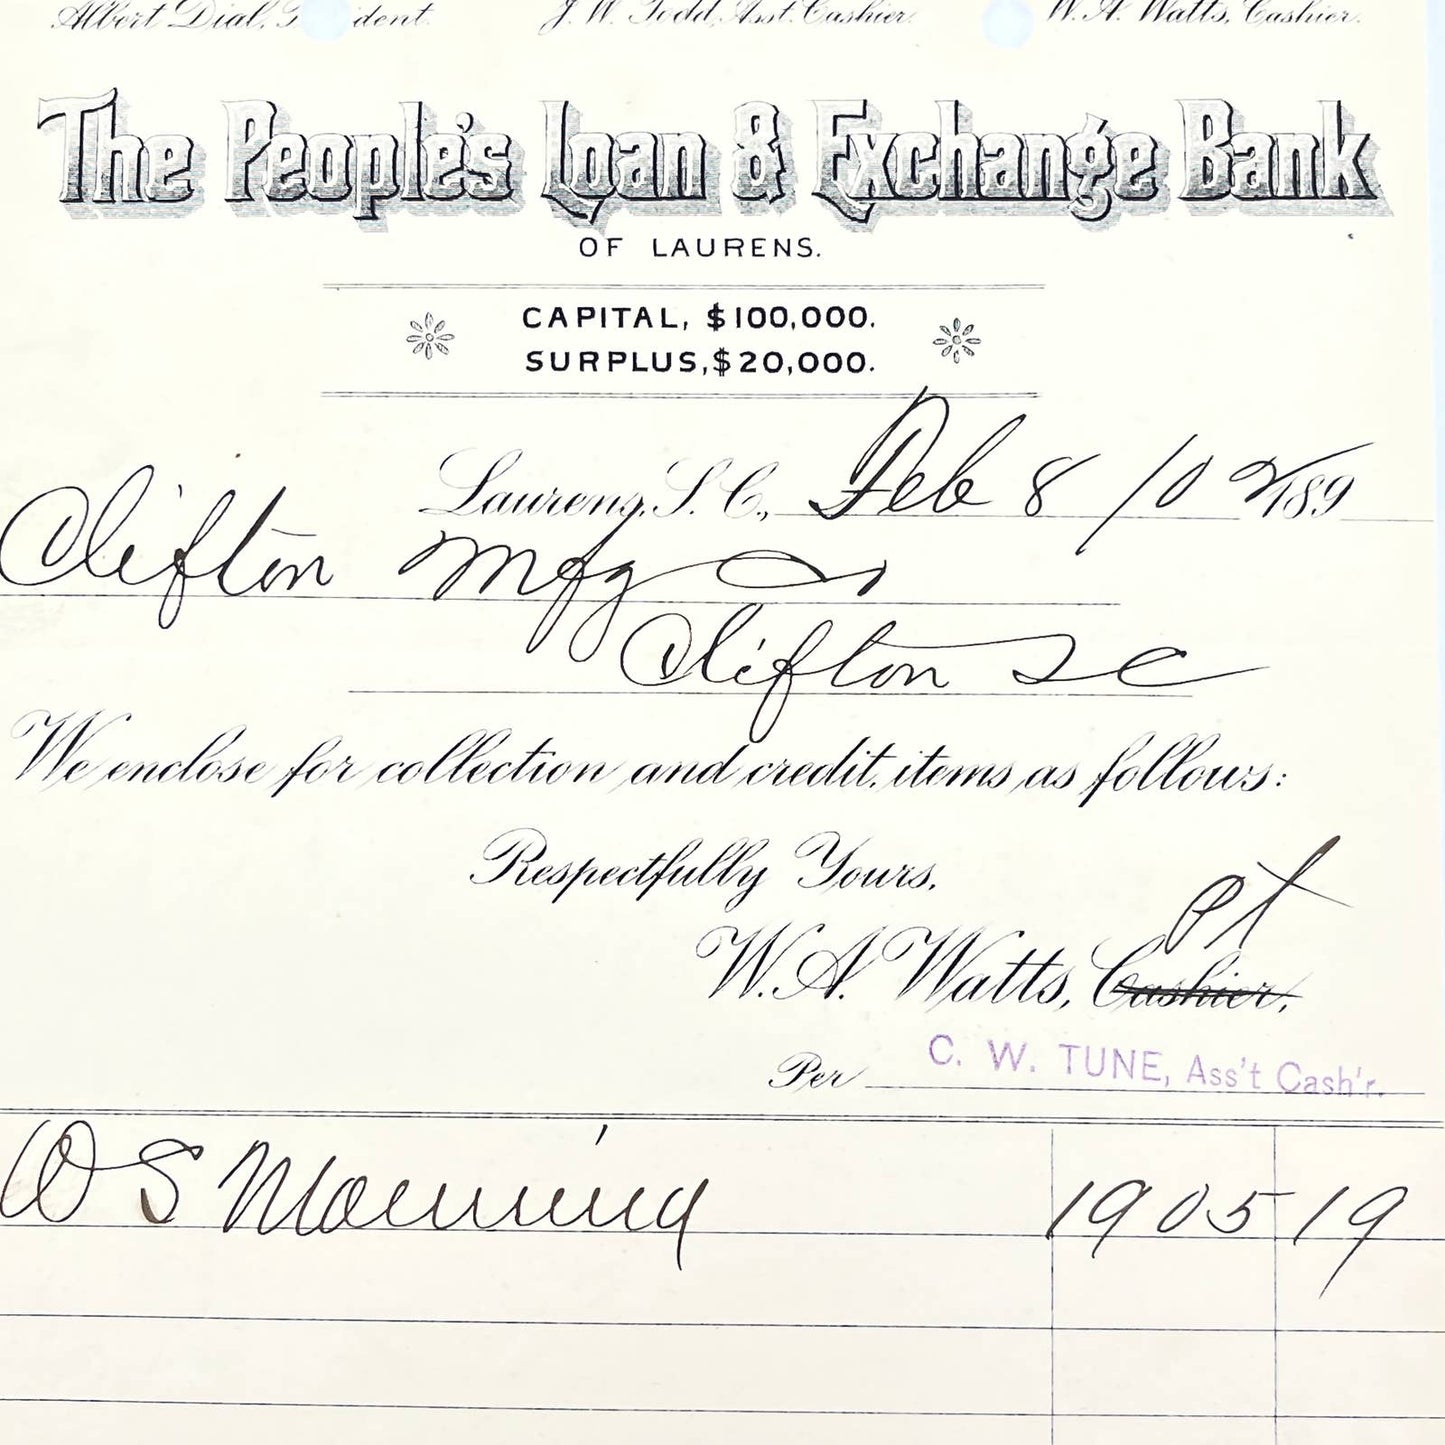 Albert Dial, President.
J. W. Todd, Asst. Cashier.
W. A. Watts, Cashier.
The People's Loan & Exchange Bank
OF LAURENS.
CAPITAL, $100,000.
SURPLUS, $20,000.
Laurens, S. C., Feb 8/02 189
Clifton Mfg Co
Clifton SC
We enclose for collection and credit, items as follows:
Respectfully Yours,
W. A. Watts, Cashier, Pt
Per C. W. TUNE, Ass't Cash'r.
W S Manning 1905 19